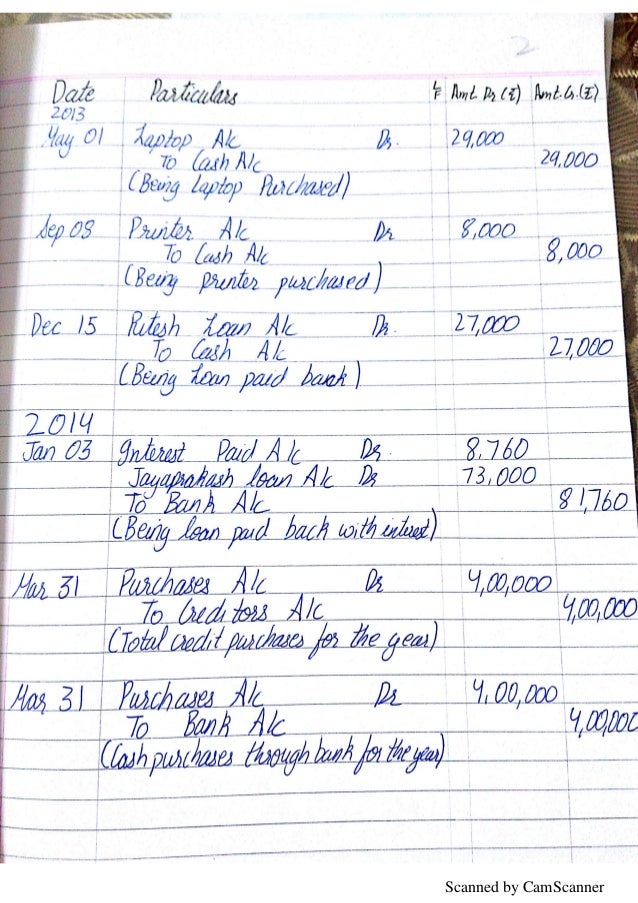 2
Date Particulars LF Amt. Dr (₹) Amt. Cr. (₹)
2013
May 01 Laptop A/c Dr. 29,000
To Cash A/c 29,000
(Being Laptop Purchased)
Sep 08 Printer A/c Dr 8,000
To Cash A/c 8,000
(Being printer purchased)
Dec 15 Ritesh Loan A/c Dr. 27,000
To Cash A/c 27,000
(Being Loan paid bank)
2014
Jan 03 Interest Paid A/c Dr. 8,760
Jayaprakash loan A/c Dr 73,000
To Bank A/c 81,760
(Being loan paid back with interest)
Mar 31 Purchases A/c Dr 4,00,000
To Creditors A/c 4,00,000
(Total credit purchases for the year)
Mar 31 Purchases A/c Dr 4,00,000
To Bank A/c 4,00,000
(Cash purchases through bank for the year)
Scanned by CamScanner